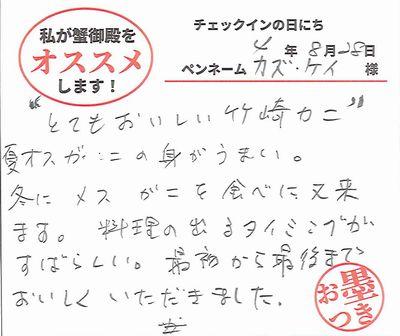 私が蟹御殿を
オススメ
します！
チェックインの日にち
4年8月28日
ペンネーム カズ・ケイ 様
"とてもおいしい竹崎カニ"
夏オスガニの身がうまい。
冬にメスガニを食べに又来
ます。料理の出るタイミングが
すばらしい。最初から最後まで
おいしくいただきました。
お墨つき